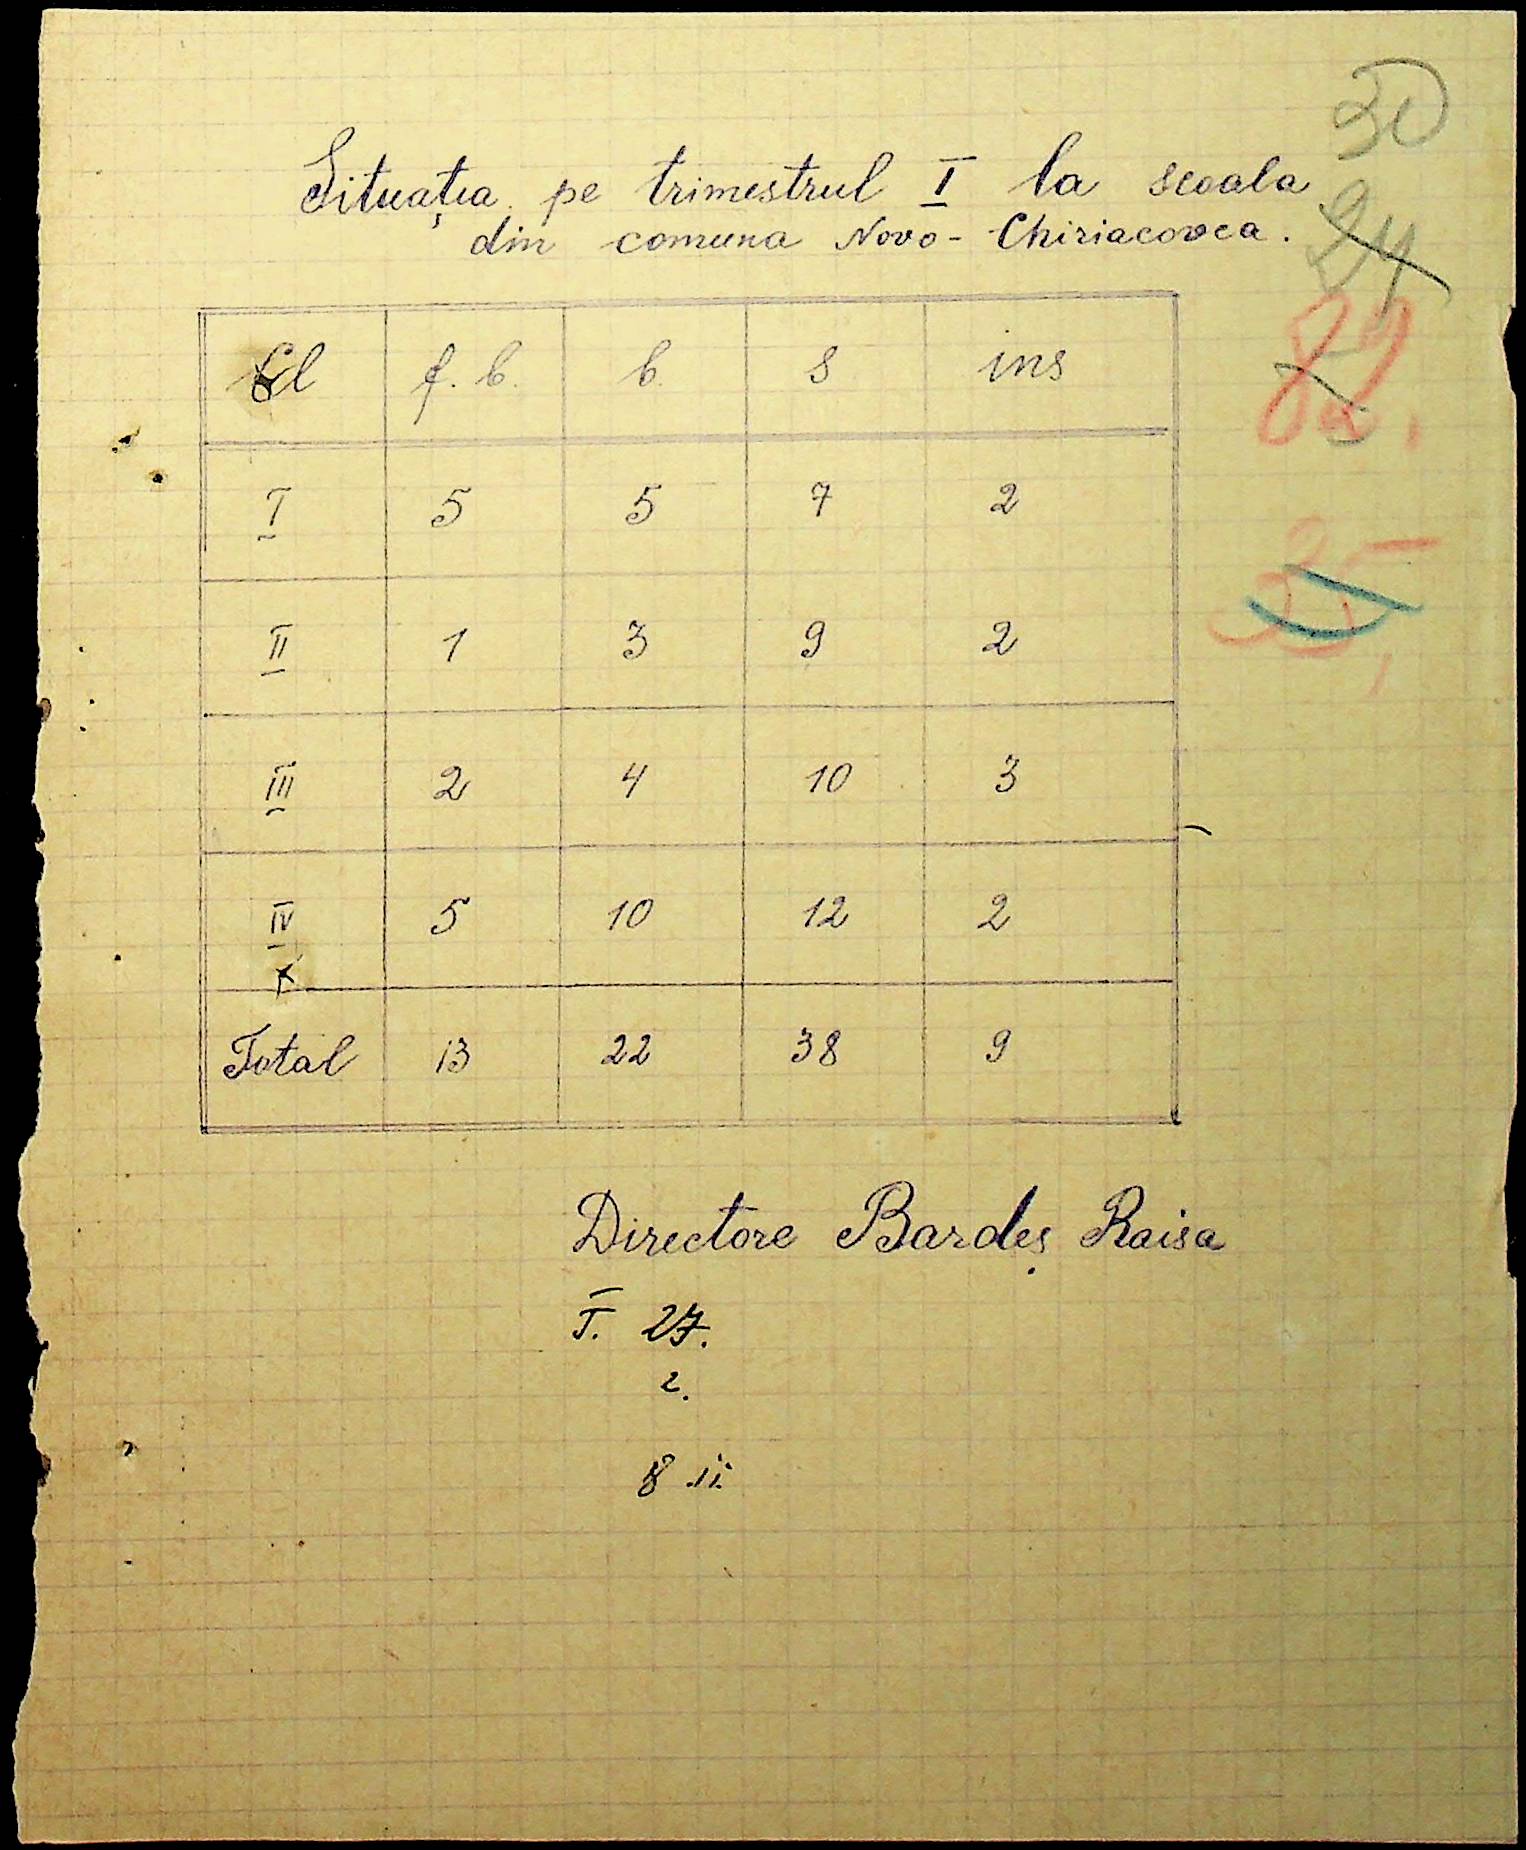 Situația pe trimestrul I la scoala
din comuna Novo-Chiriacovca.
30
24
82
Cl f. b. b. s ins
I 5 5 7 2
II 1 3 9 2
III 2 4 10 3
IV 5 10 12 2
Total 13 22 38 9
Directore Bardeș Raisa
I. 27.
2.
8 .II.